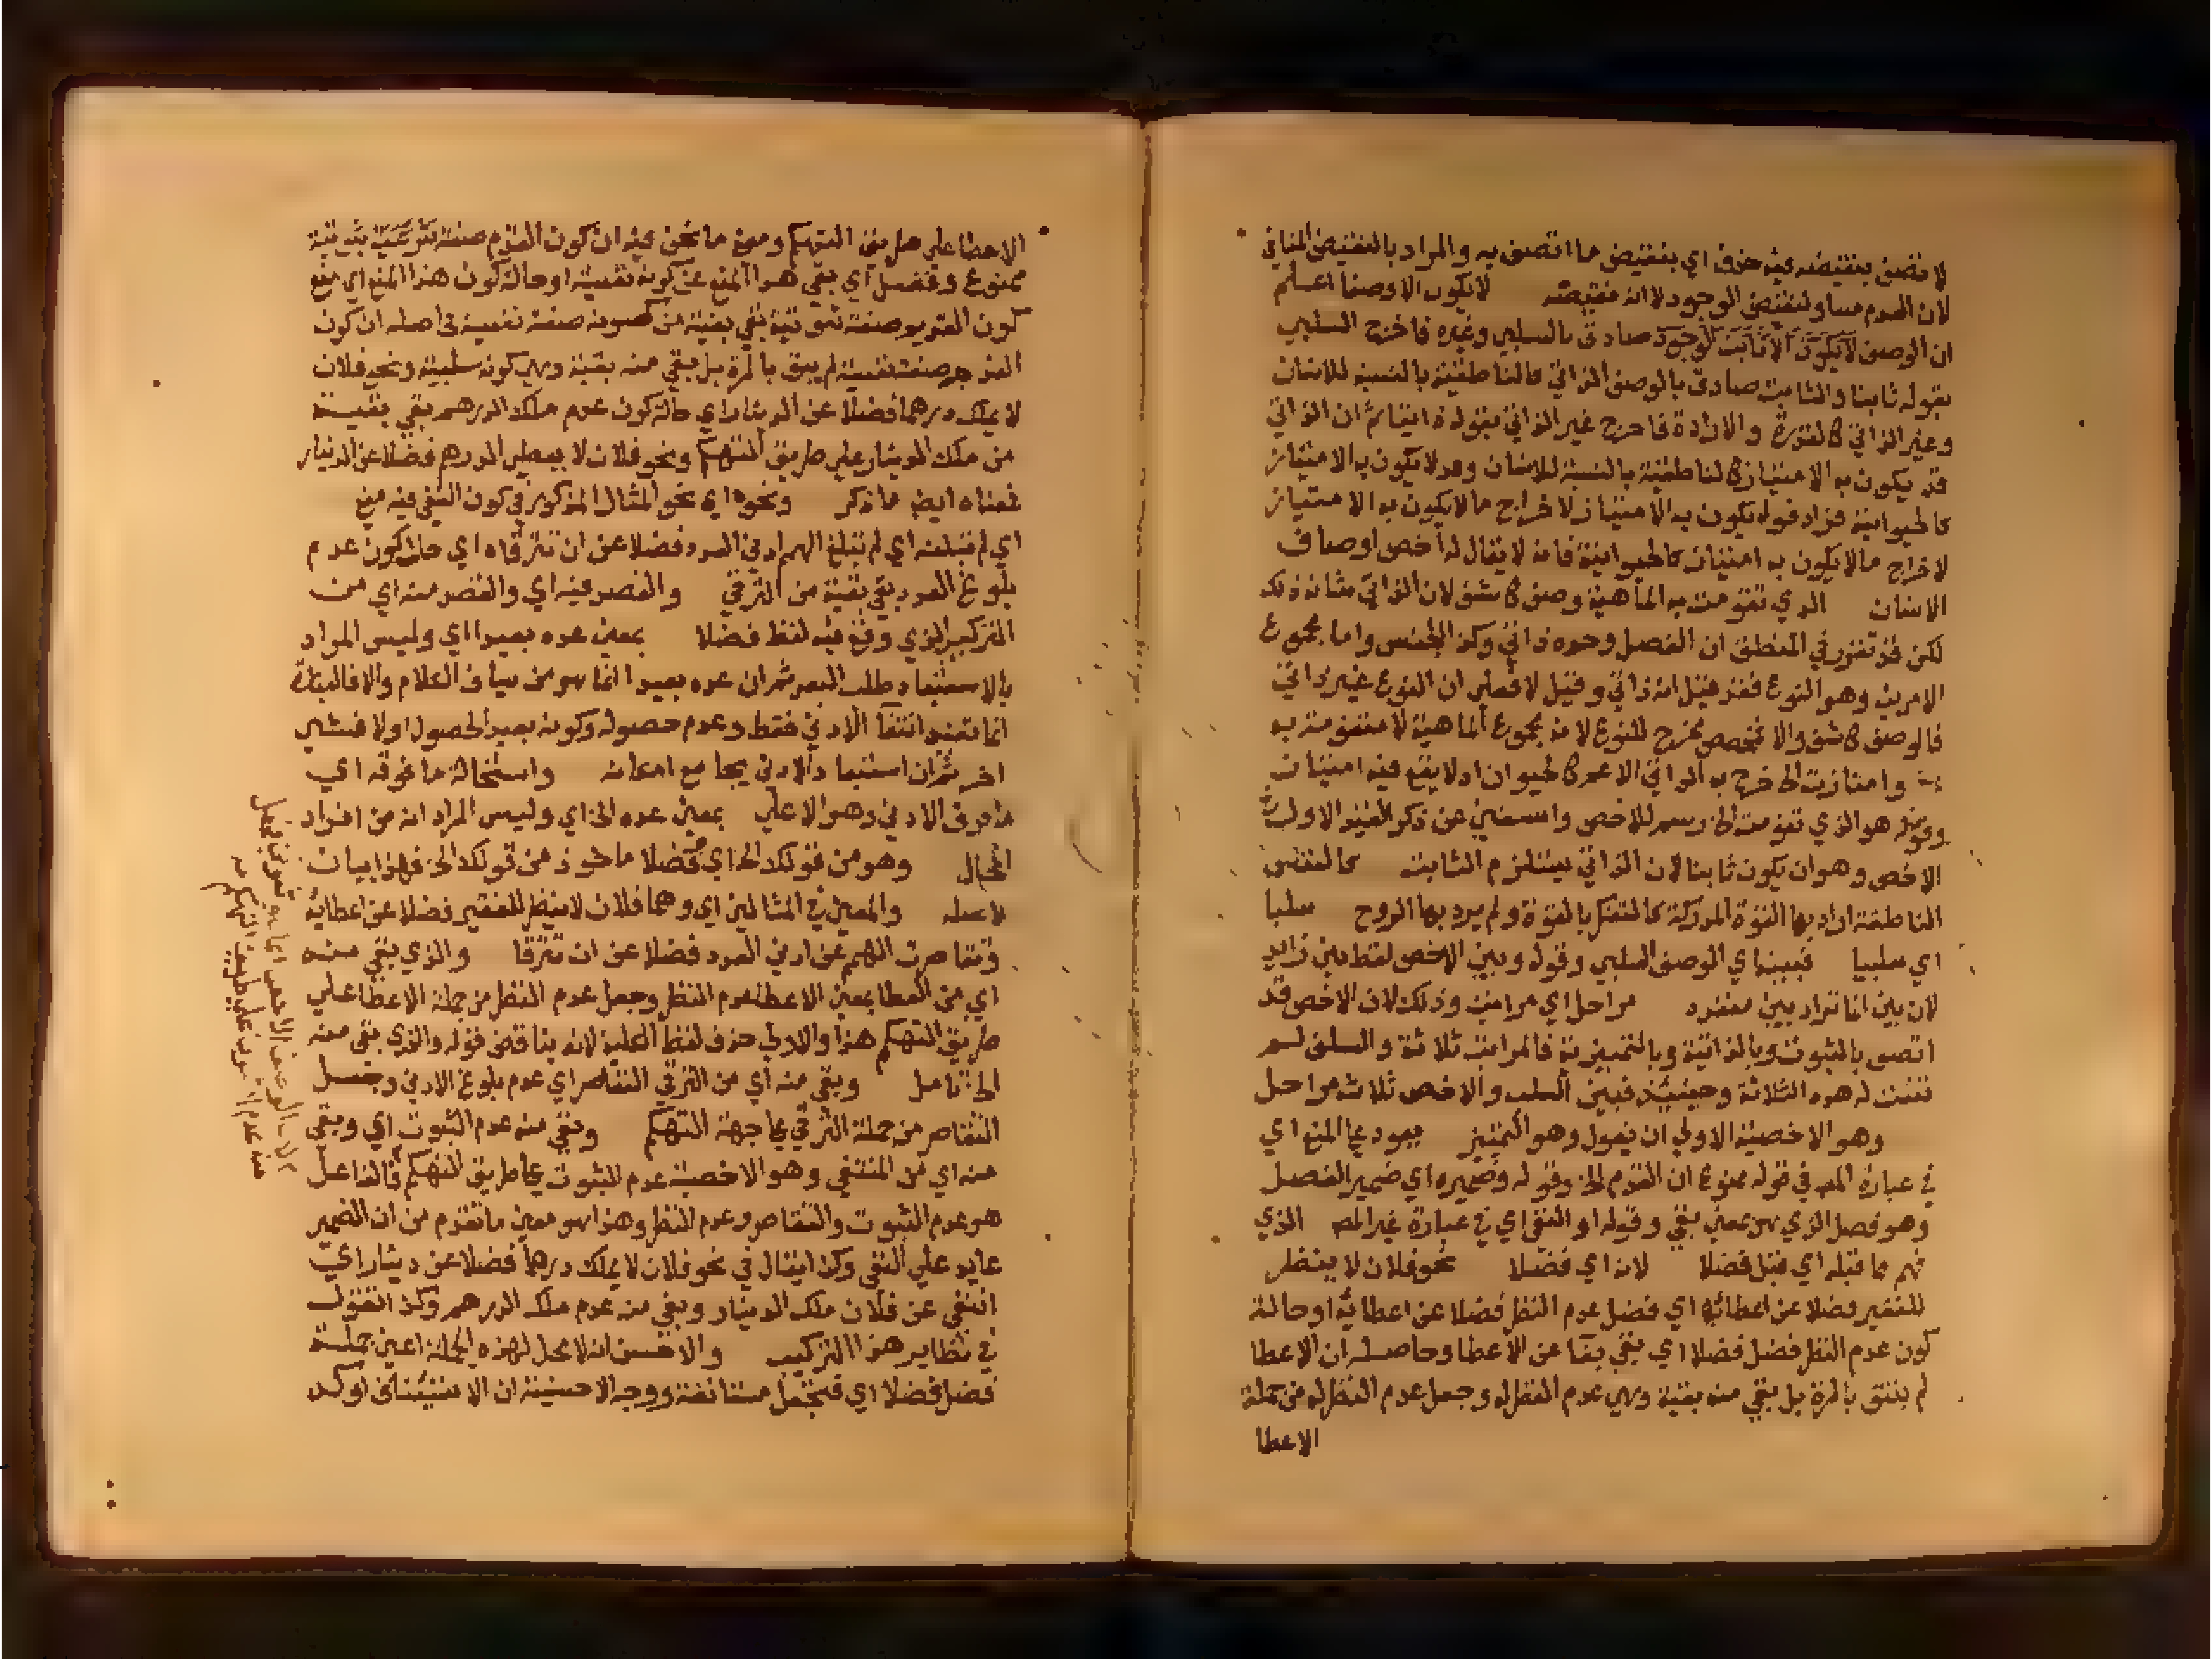 لاتصف بنقيضه فيه حذف اي بنقيض ما اتصف به والمراد بالنقيض المنافي
لان العدم مساو لنقيض الوجود لا انه نقيضه لا يكون الا وصفا اعلم
ان الوصف لا يكون الا ثابت الوجود صادق بالسلبي وغيره فاخرج السلبي
بقوله ثابتا والثابت صادق بالوصف الذاتي كالناطقية بالنسبة للانسان
وغير الذاتي كالقدرة والارادة فاخرج غير الذاتي بقوله ذاتيا ثم ان الذاتي
قد يكون به الامتياز كالناطقية بالنسبة للانسان وقد لا يكون به الامتياز
كالحيوانية فزاد قوله يكون به الامتياز لاخراج ما لا يكون به الامتياز
لاخراج ما لا يكون به امتياز كالحيوانية فانه لا يقال له اخص اوصاف
الانسان الذي تقومت به الماهية وصف كاشف لان الذاتي شانه ذلك
لكن قد تقرر في المنطق ان الفصل وحده ذاتي وكذا الجنس واما مجموع
الامرين وهو النوع فقد قيل انه ذاتي وقيل لا فعلى ان النوع غير ذاتي
فالوصف كاشف والا فخصص مخرج للنوع لانه مجموع الماهية لا متقومة به
وامتازت الخ خرج به الذاتي الاعم كالحيوان اذ لا يقع فيه امتياز
وقوله هو الذي تقومت الخ رسم للاخص واستغنى عن ذكر القيد الاول
الاخص وهو ان يكون ثابتا لان الذاتي يستلزم الثابت كالنفس
الناطقة اراد بها القوة المدركة كالتفكر بالقوة ولم يرد بها الروح سلبا
اي سلبيا فبينه اي الوصف السلبي وقوله وبين الاخص لفظ بين زايد
لان بين انما تزاد بين مفرده مراحل اي مراتب وذلك لان الاخص قد
اتصف بالثبوت وبالذاتية وبالتمييزية فالمراتب ثلاثة والسلب لم
تثبت له هذه الثلاثة وحينئذ فبين السلب والاخص ثلاث مراحل
وهو الاخصية الاولى ان يقول وهو التمييز يعود على المنع اي
في عبارة المص في قوله ممنوع ان القدم الخ وقوله وضميره اي ضمير الفصل
وهو فصل الذي بمعنى بقي وقوله او النفي اي في عبارة غير المص الذي
فهم مما قبله اي قبل فضلا لانه اي فضلا نحو فلان لا ينظر
للفقير فضلا عن اعطائه اي فضل عدم النظر فضلا عن اعطايه او حالة
كون عدم النظر فضل فضلا اي بقي بقا عن الاعطا وحاصله ان الاعطا
لم ينتف بالمرة بل بقي منه بقية وهي عدم النظر له وجعل عدم النظر له من جملة
الاعطا
الاعطا على طريق التهكم ومعنى ما نحن فيه ان كون القدم صفة ثبوتية
ممنوع وفضل اي بقي هذا المنع عن كونه نفسية او حالة كون هذا المنع اي منع
كون القدم صفة ثبوتية بقي بقية من كونه صفة نفسية حاصله ان كون
القدم صفة نفسية لم يبق بالمرة بل بقي منه بقية وهي كونه سلبية ونحو فلان
لا يملك درهما فضلا عن الدينار اي حالة كون عدم ملك الدرهم بقي بقية
من ملك الدينار على طريق التهكم ونحو فلان لا يعطي الدرهم فضلا عن الدينار
فمعناه ايضا ما ذكر ونحوه اي نحو المثال المذكور في كون النفي فيه مع
اي لم تبلغه اي لم تبلغ الهم ادنى العدد فضلا عن ان تترقاه اي حالة كون عدم
بلوغ العدد بقي بقية من الترقي والقصر فيه اي والقصر منه اي من
التركيب الذي وقع فيه لفظ فضلا بمعنى عده بعيدا اي وليس المراد
بالاستبعاد طلب البعد ثم ان عده بعيدا انما هو من سياق الكلام والا فالعبارة
انما تفيد انتفا الادنى فقط وعدم حصوله وكونه بعيد الحصول اولا فشي
اخر ثم ان استبعاد الادنى يجامع امكانه واستحالة ما فوقه اي
ما فوق الادنى وهو الاعلى بمعنى عده الخ اي وليس المراد انه من افراد
المحال وهو من قولك الخ اي فضلا ماخوذ من قولك الخ فهذا بيان
لاصله والمعنى في المثالين اي وهما فلان لا ينظر للفقير فضلا عن اعطايه
وتقاصرت الهمم عن ادنى العدد فضلا عن ان تترقا والذي بقي منه
اي من العطا بمعنى الاعطا عدم النظر وجعل عدم النظر من جملة الاعطا على
طريق التهكم هذا والاولى حذف لفظ العلية لانه يناقض قوله والذي بقي منه
الخ تامل وبقي منه اي من الترقي التقاصر اي عدم بلوغ الادنى وجعل
التقاصر من جملة الترقي على جهة التهكم وبقي منه عدم الثبوت اي وبقي
منه اي من المنتفي وهو الاخصية عدم الثبوت على طريق التهكم فالفاعل
هو عدم الثبوت والتقاصر وعدم النظر وهذا هو معنى ما تقدم من ان الضمير
عايد على النفي وكذا يقال في نحو فلان لا يملك درهما فضلا عن دينار اي
انتفى عن فلان ملك الدينار وبقي منه عدم ملك الدرهم وكذا تقول
في نظاير هذا التركيب والاحسن انه لا محل لهذه الجملة اعني جملة
فضل فضلا اي فتجعل مستانفة ووجه الاحسنية ان الاستيناف اوكد